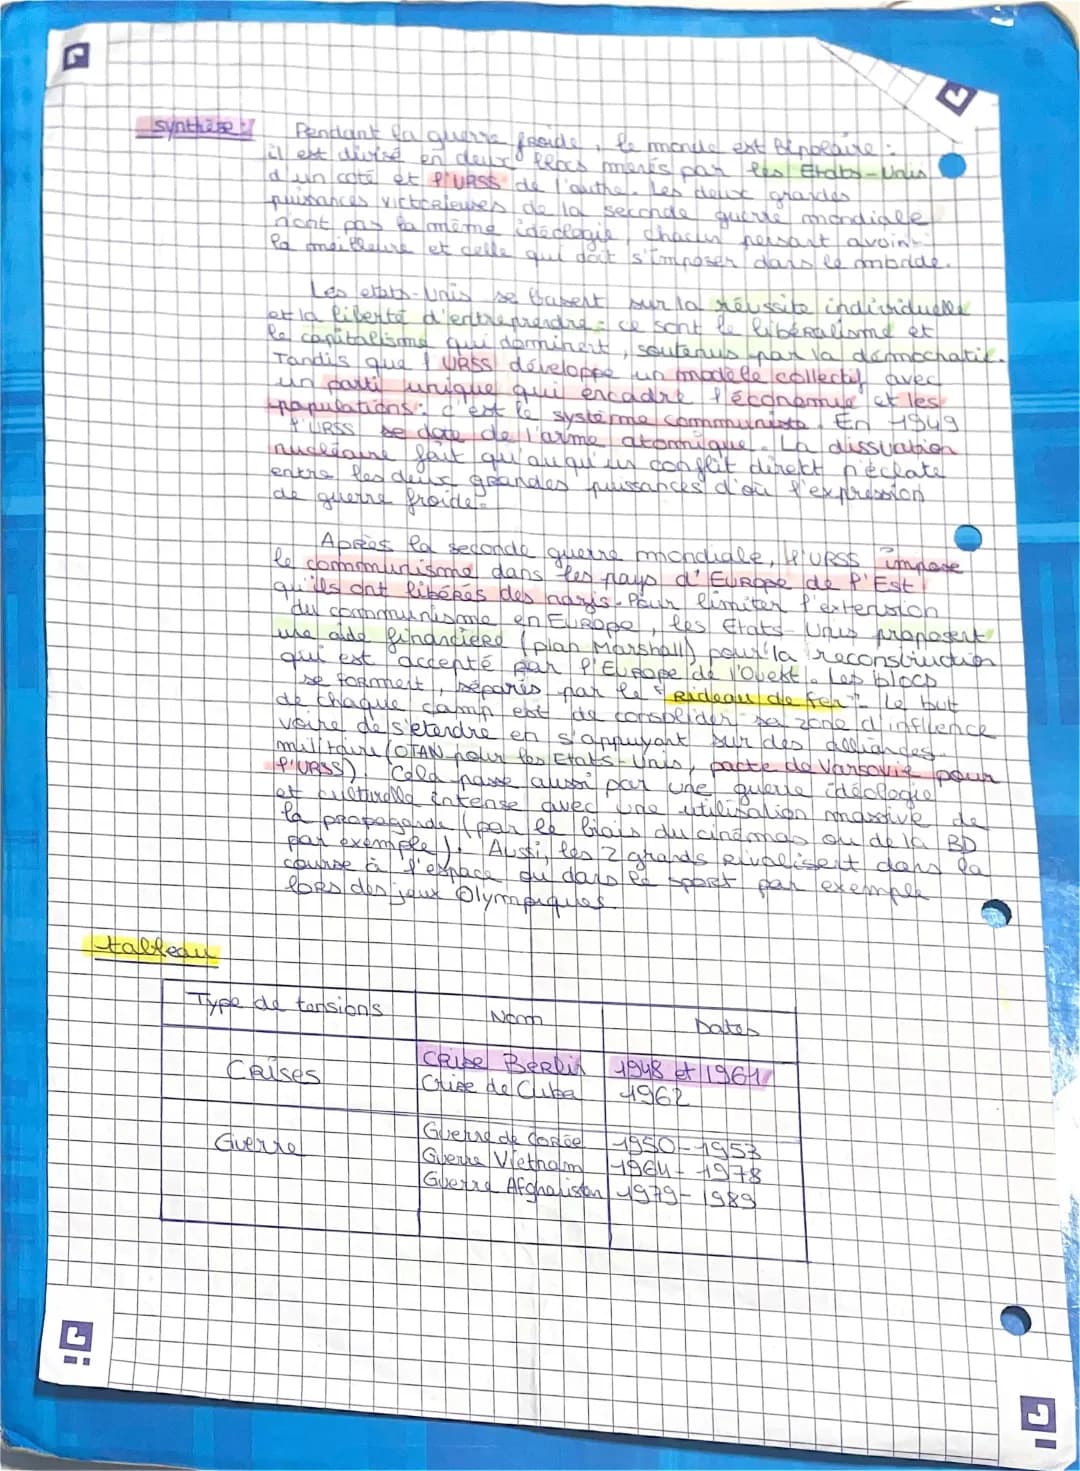 synthèse: Pendant la guerre froide, le monde est Binolaire:
il est divisé en deux blocs menés par les Etats-Unis
d'un coté et l'URSS de l'autre. Les deux grandes
puissances victorieuses de la seconde guerre mondiale
n'ont pas la même idéologie, chacun pensant avoir
la meilleure et celle qui doit s'imposer dans le monde.
Les etats-Unis se basent sur la réussite individuelle
et la liberté d'entreprendre: ce sont le libéralisme et
le capitalisme qui dominent, soutenus par la démocratie.
Tandis que l'URSS développe un modèle collectif avec
un parti unique qui encadre l'économie et les
populations: c'est le système communiste. En 1949
l'URSS se dote de l'arme atomique. La dissuation
nucléaire fait qu'auqu'un conflit direct n'éclate
entre les deux grandes puissances d'où l'expression
de guerre froide.
Après la seconde guerre mondiale, l'URSS impose
le communisme dans les pays d'Europe de l'Est
qu'ils ont libérés des nazis. Pour limiter l'extension
du communisme en Europe, les Etats-Unis proposent
une aide financière (plan Marshall) pour la reconstruction
qui est accepté par l'Europe de l'Ouest. Les blocs
se forment, séparés par le "Rideau de fer". Le but
de chaque camp est de consolider sa zone d'influence
voire de s'etendre en s'appuyant sur des alliances
militaire (OTAN pour les Etats-Unis, pacte de Varsovie pour
l'URSS). Cela passe aussi par une guerre idéologie
et culturelle intense avec une utilisation massive de
la propagande (par le biais du cinémas ou de la BD
par exemple). Aussi, les 2 grands rivalisent dans la
course à l'espace ou dans le sport par exemple
lors des jeux Olympiques.
tableau
Type de tensions Nom Dates
Crises Crise Berlin 1948 et 1961
Crise de Cuba 1962
Guerre Guerre de Corée 1950-1953
Guerre Vietnam 1964-1978
Guerre Afghalistan 1979-1989